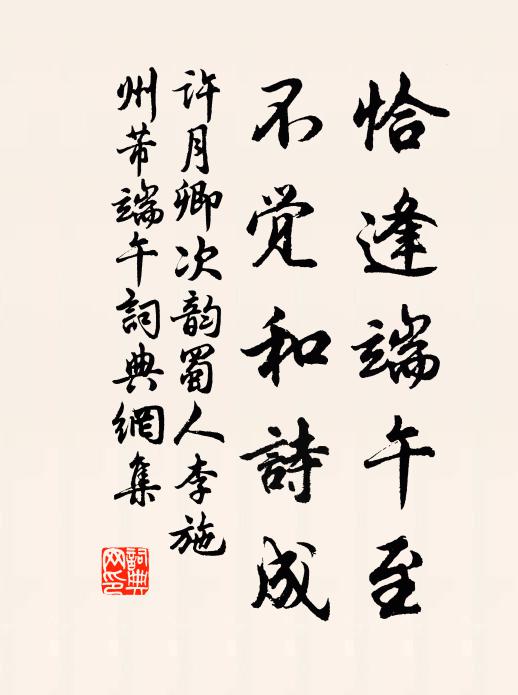 恰逢端午至
不觉和詩成
许月卿次韵蜀人李施
州芾端午詞典網集
詞典网印